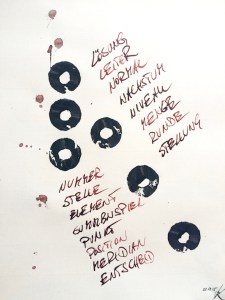 LÖSUNG
LEITER
NORMAL
WACHSTUM
NIVEAU
MENGE
RUNDE
STELLUNG
NUMMER
STELLE
ELEMENT
PUNKT
POSITION
MERIDIAN
ENTSCHEID